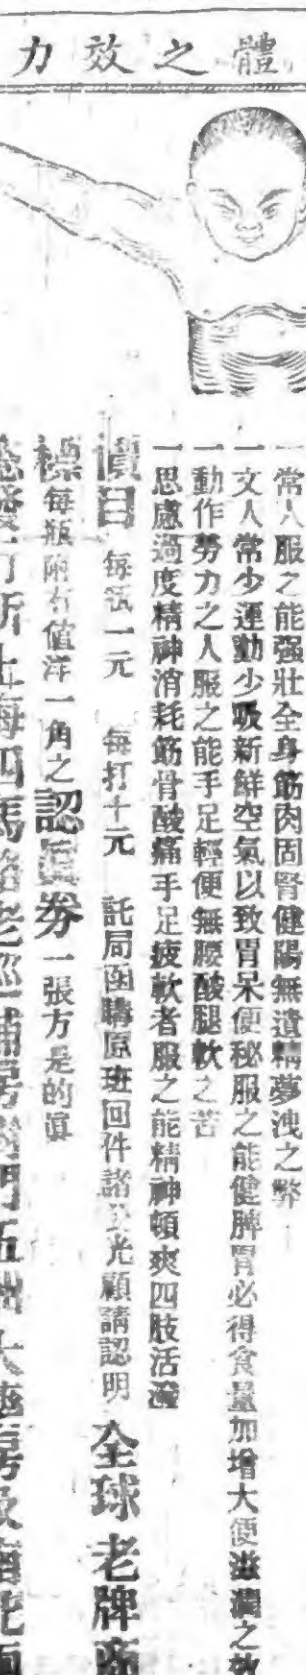 體之效力
一常人服之能强壯全身筋肉固腎健陽無遺精夢洩之弊
一文人常少運動少吸新鮮空氣以致胃呆便秘服之能健脾胃必得食量加增大便滋潤之效
一動作勞力之人服之能手足輕便無腰酸腿軟之苦
一思慮過度精神消耗筋骨酸痛手足疲軟者服之能精神頓爽四肢活潑
價目 每瓶一元 每打十元 託局函購原班回件諸公光顧請認明全球老牌商
標每瓶附有值洋一角之認眞券一張方是的眞
發行所上海四馬路老巡捕房對門五洲大藥房及